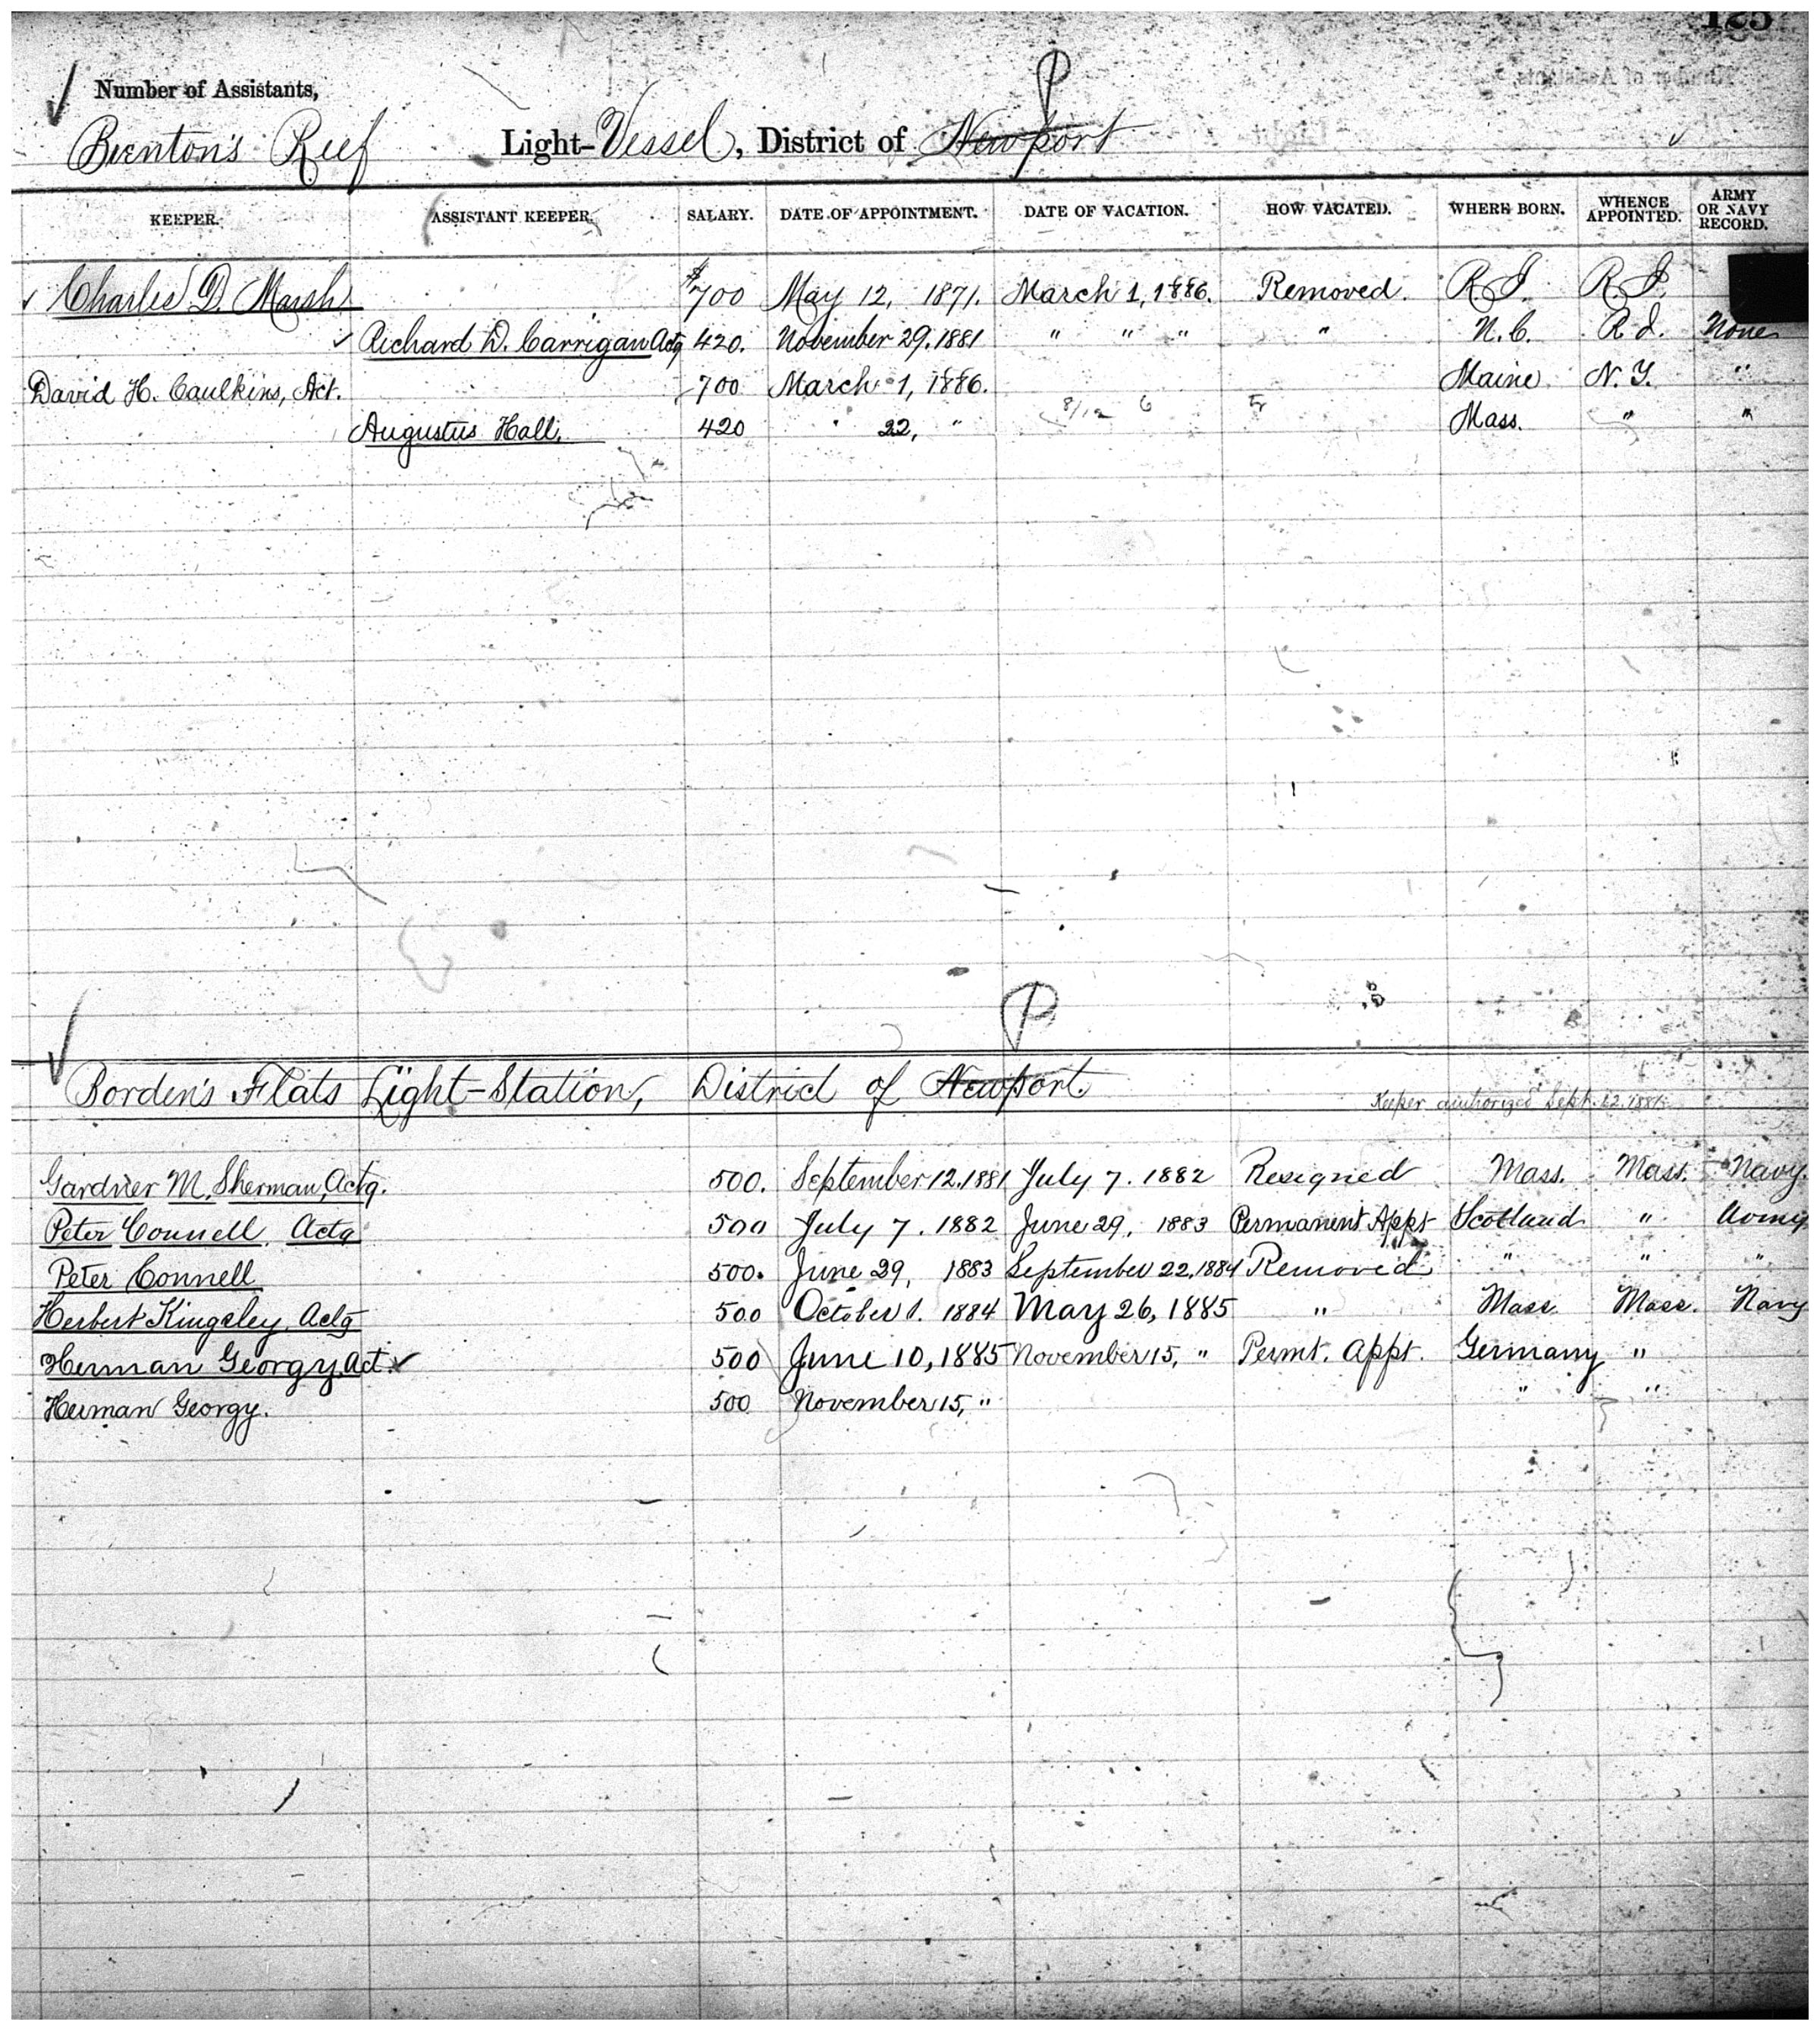 125
Number of Assistants,
P
Brenton's Reef Light-Vessel, District of Newport
KEEPER. ASSISTANT KEEPER. SALARY. DATE OF APPOINTMENT. DATE OF VACATION. HOW VACATED. WHERE BORN. WHENCE APPOINTED. ARMY OR NAVY RECORD.
Charles D. Marsh $700 May 12, 1871. March 1, 1886. Removed. R.I. R.I.
Richard D. Carrigan Actg 420. November 29. 1881 " " " " N.C. R.I. None
David H. Caulkins, Act. 700 March 1, 1886. Maine N.Y. "
Augustus Hall, 420 " 22, " 8/12 6 Mass. " "
P
Borden's Flats Light-Station, District of Newport.
Keeper authorized Sept. 12. 1881.
Gardner M. Sherman, Actg. 500. September 12. 1881 July 7. 1882 Resigned Mass. Mass. Navy.
Peter Connell, Actg 500 July 7. 1882 June 29, 1883 Permanent Appt Scotland " Army
Peter Connell 500. June 29, 1883 September 22, 1884 Removed " " "
Herbert Kingsley, Actg 500 October 1. 1884 May 26, 1885 " Mass. Mass. Navy
Herman Georgy, Act. 500 June 10, 1885 November 15, " Permt. Appt. Germany "
Herman Georgy. 500 November 15, " " "